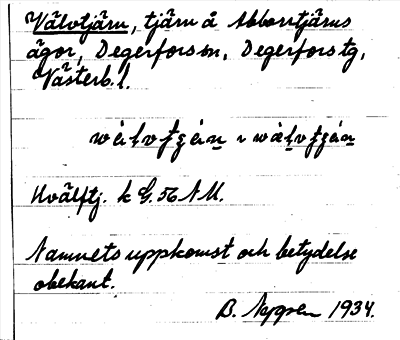 Välvtjärn, tjärn å Abborrtjärns
ägor, Degerfors sn, Degerfors tg,
Västerb. l.
Hvälftj. k G. 56 N U.
Namnets uppkomst och betydelse
obekant.
B. Nygren 1934.